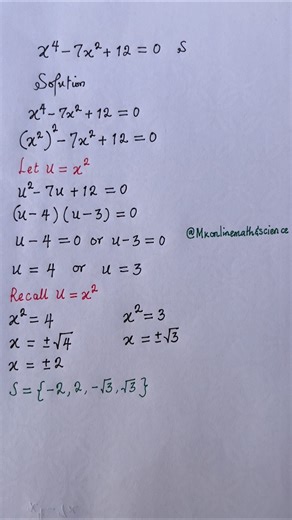 x⁴ - 7x² + 12 = 0 S
Solution
x⁴ - 7x² + 12 = 0
(x²)² - 7x² + 12 = 0
Let u = x²
u² - 7u + 12 = 0
(u - 4)(u - 3) = 0
u - 4 = 0 or u - 3 = 0
@Mxonlinemath&science
u = 4 or u = 3
Recall u = x²
x² = 4 x² = 3
x = ±√4 x = ±√3
x = ±2
S = {-2, 2, -√3, √3}